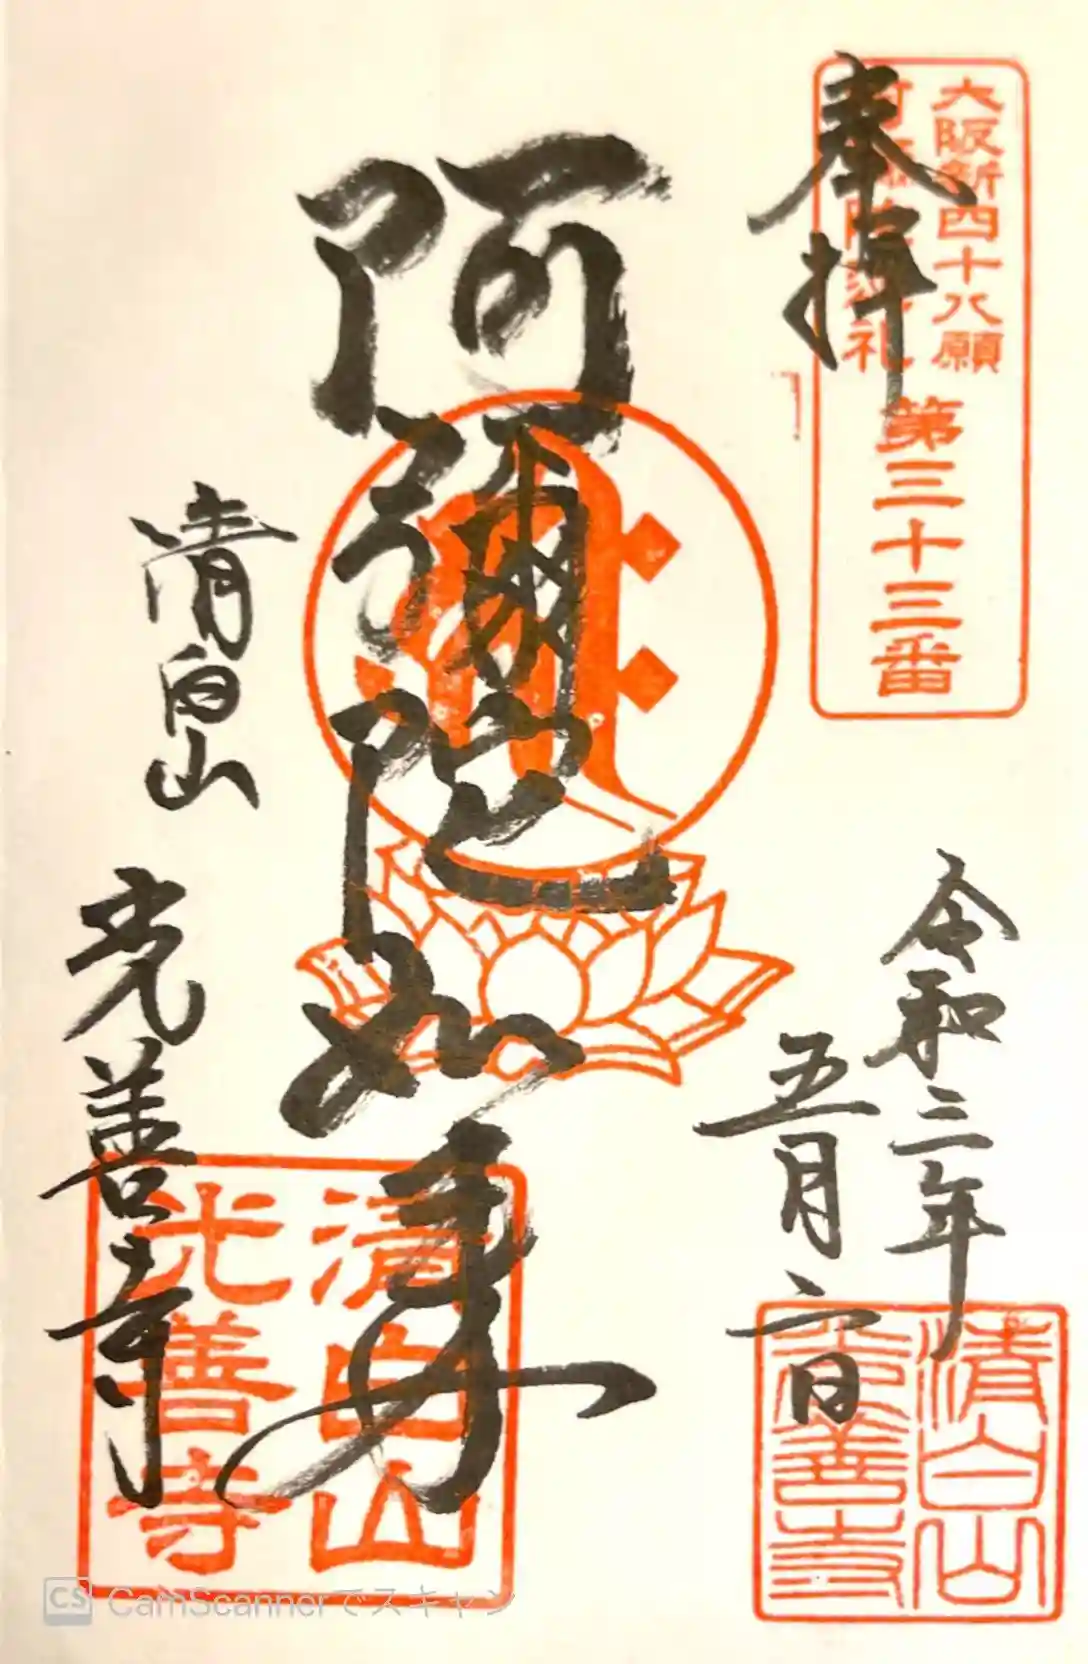 奉拝
大阪新四十八願
阿弥陀巡礼
第三十三番
令和三年
五月六日
清白山
光善寺
阿彌陀如来
清白山
光善寺
清白山
光善寺
CS CamScannerでスキャン